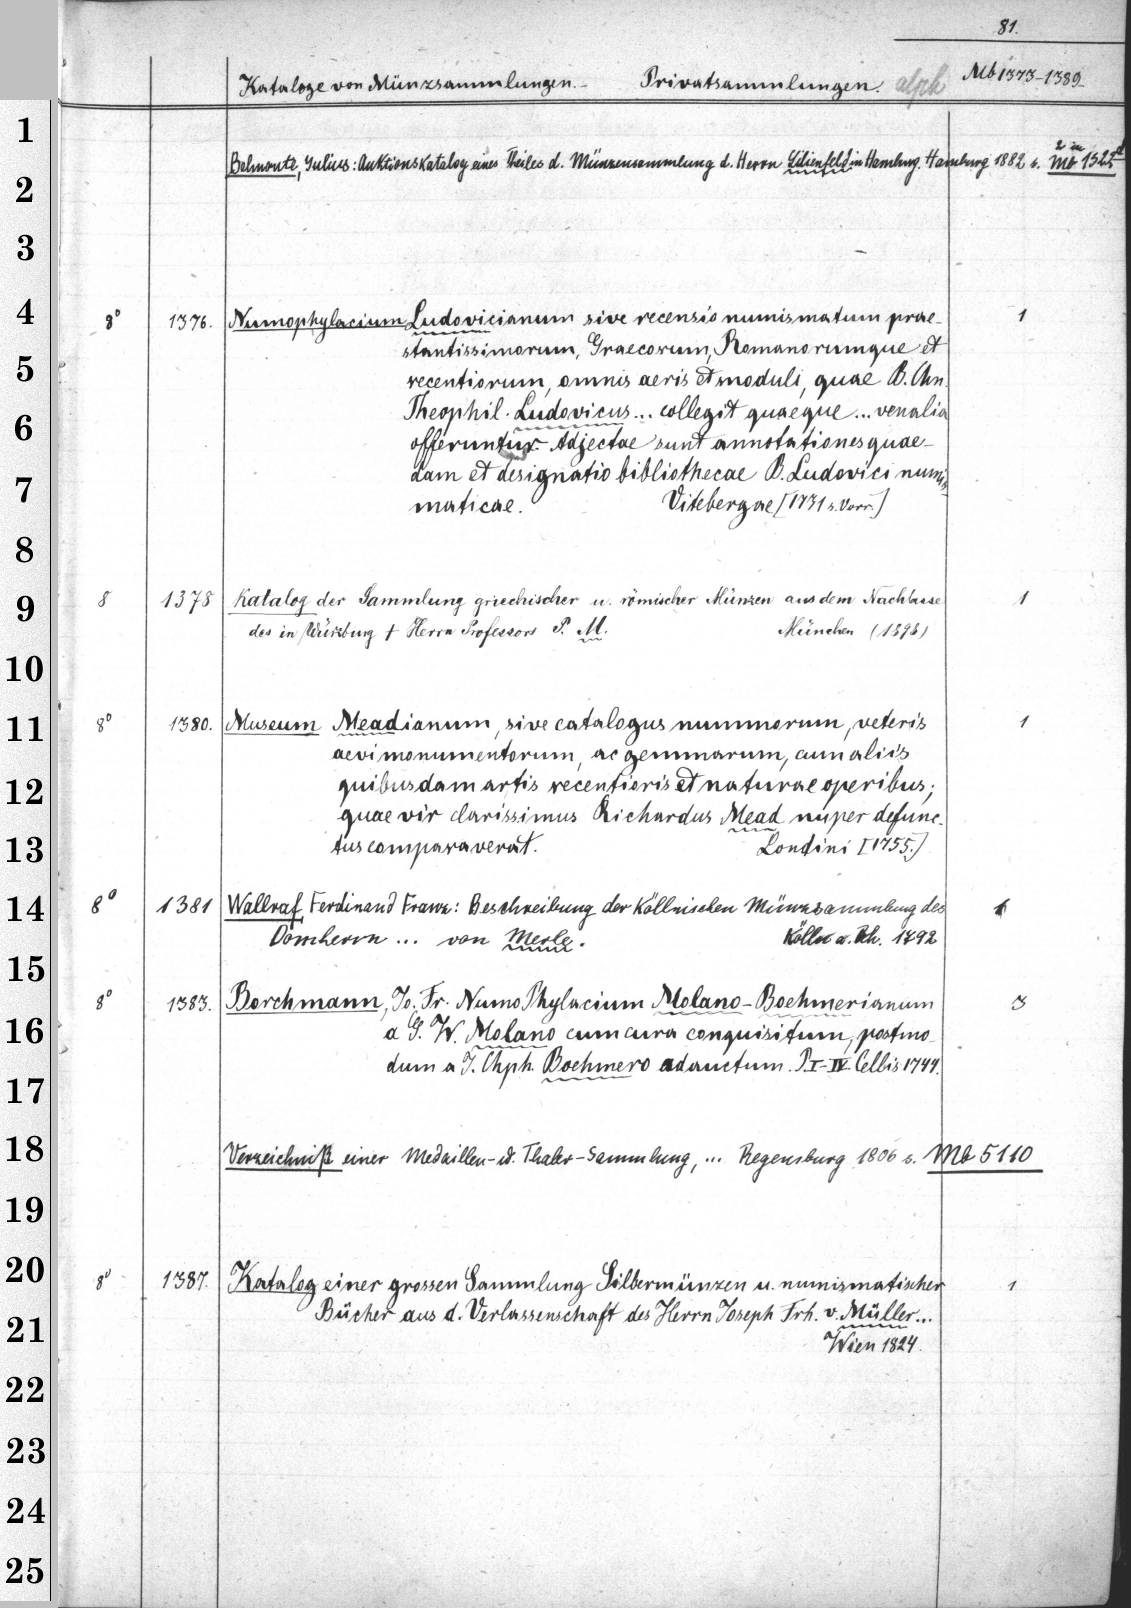 81.
Kataloge von Münzsammlungen.- Privatsammlungen. alph Mb 1373-1389
1
Belmonte, Julius: Auktionskatalog eines Theiles d. Münzensammlung d. Herrn Lilienfeld in Hamburg. Hamburg 1882 s. 2 in Mb 1525d
2
3
4 8° 1376. Numophylacium Ludovicianum sive recensio numismatum prae- 1
stantissimorum, Graecorum, Romanorumque et
5 recentiorum, omnis aeris et moduli, quae B. Chn.
6 Theophil. Ludovicus... collegit quaeque ... venalia
offeruntur. Adjectae sunt annotationes quae-
7 dam et designatio bibliothecae B. Ludovici numis-
maticae. Vitebergae [1771 s. Vorr.]
8
9 8 1378 Katalog der Sammlung griechischer u. römischer Münzen aus dem Nachlasse 1
des in Würzburg † Herrn Professors P. M. München (1898)
10
11 8° 1380. Museum Meadianum, sive catalogus nummorum, veteris 1
aevi monumentorum, ac gemmarum, cum aliis
12 quibusdam artis recentioris et naturae operibus;
quae vir clarissimus Richardus Mead nuper defunc-
13 tus comparaverat. Londini [1755.]
14 8° 1381 Wallraf, Ferdinand Franz: Beschreibung der Köllnischen Münzsammlung des 1
Domherrn ... von Merle. Kölln a. Rh. 1792
15
8° 1383. Borchmann, Jo. Fr. Numo Phylacium Molano-Boehmerianum 3
16 a G. W. Molano cum cura conquisitum, postmo-
dum a J. Chph. Boehmero adauctum. P. I-IV. Cellis 1744.
17
18 Verzeichniß einer Medaillen- u. Thaler-Sammlung, ... Regensburg 1806 s. Mb 5110
19
20 8° 1387. Katalog einer grossen Sammlung Silbermünzen u. numismatischer 1
21 Bücher aus d. Verlassenschaft des Herrn Joseph Frh. v. Müller...
Wien 1824.
22
23
24
25